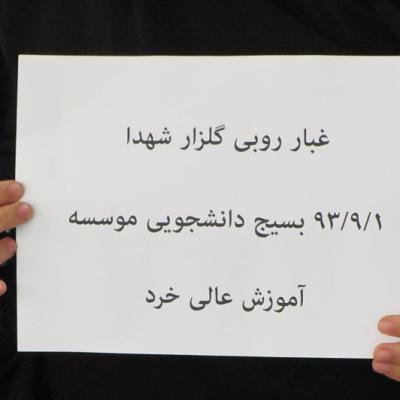 غبار روبی گلزار شهدا
۹۳/۹/۱ بسیج دانشجویی موسسه
آموزش عالی خرد